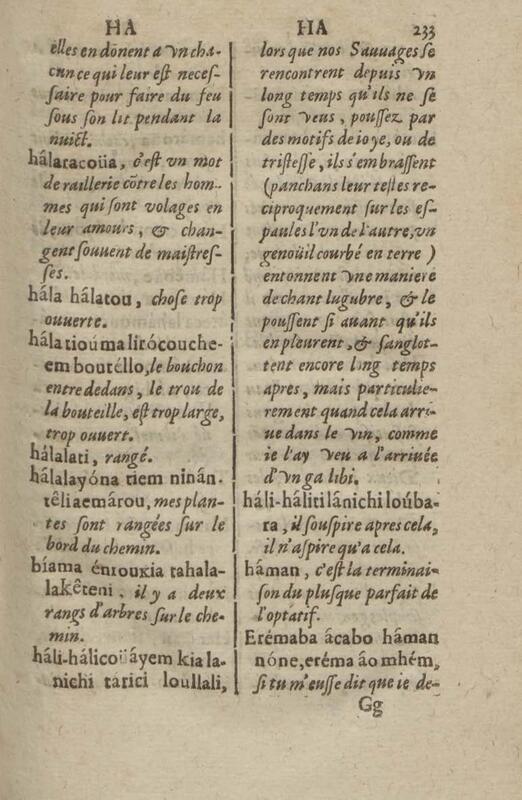 HA
HA 233
elles en dõnent a vn cha-
cun ce qui leur est neces-
saire pour faire du feu
sous son lit pendant la
nuict.
hálaracoüa, c'est vn mot
de raillerie cõtre les hom-
mes qui sont volages en
leur amours, & chan-
gent souuent de maistres-
ses.
hála hálatou, chose trop
ouuerte.
hálatiouma litócouche-
em boutéllo, le bouchon
entre dedans, le trou de
la bouteille, est trop large,
trop ouuert.
hálalati, rangé.
hálalayóna tiem ninán-
têliaemárou, mes plan-
tes sont rangées sur le
bord du chemin.
bíama éntoukia tahala-
lakêteni, il y a deux
rangs d'arbres sur le che-
min.
háli-hálicoüáyem kia la-
nichi tarici loullali,
lors que nos Sauuages se
rencontrent depuis vn
long temps qu'ils ne se
sont veus, poussez par
des motifs de ioye, ou de
tristesse, ils s'embrassent
(panchans leur testes re-
ciproquement sur les es-
paules l'vn de l'autre, vn
genoüil courbé en terre)
entonnent vne maniere
de chant lugubre, & le
poussent si auant qu'ils
en pleurent, & sanglot-
tent encore long temps
apres, mais particulie-
rement quand cela arri-
ue dans le vin, comme
ie l'ay veu a l'arriuée
d'vn galibi.
háli-háliti lánichi loúba-
ra, il souspire apres cela,
il n'aspire qu'a cela.
háman, c'est la terminai-
son du plusque parfait de
l'optatif.
Erémaba ácabo háman
nóne, eréma áo mhém,
si tu m'eusse dit que ie de-
Gg